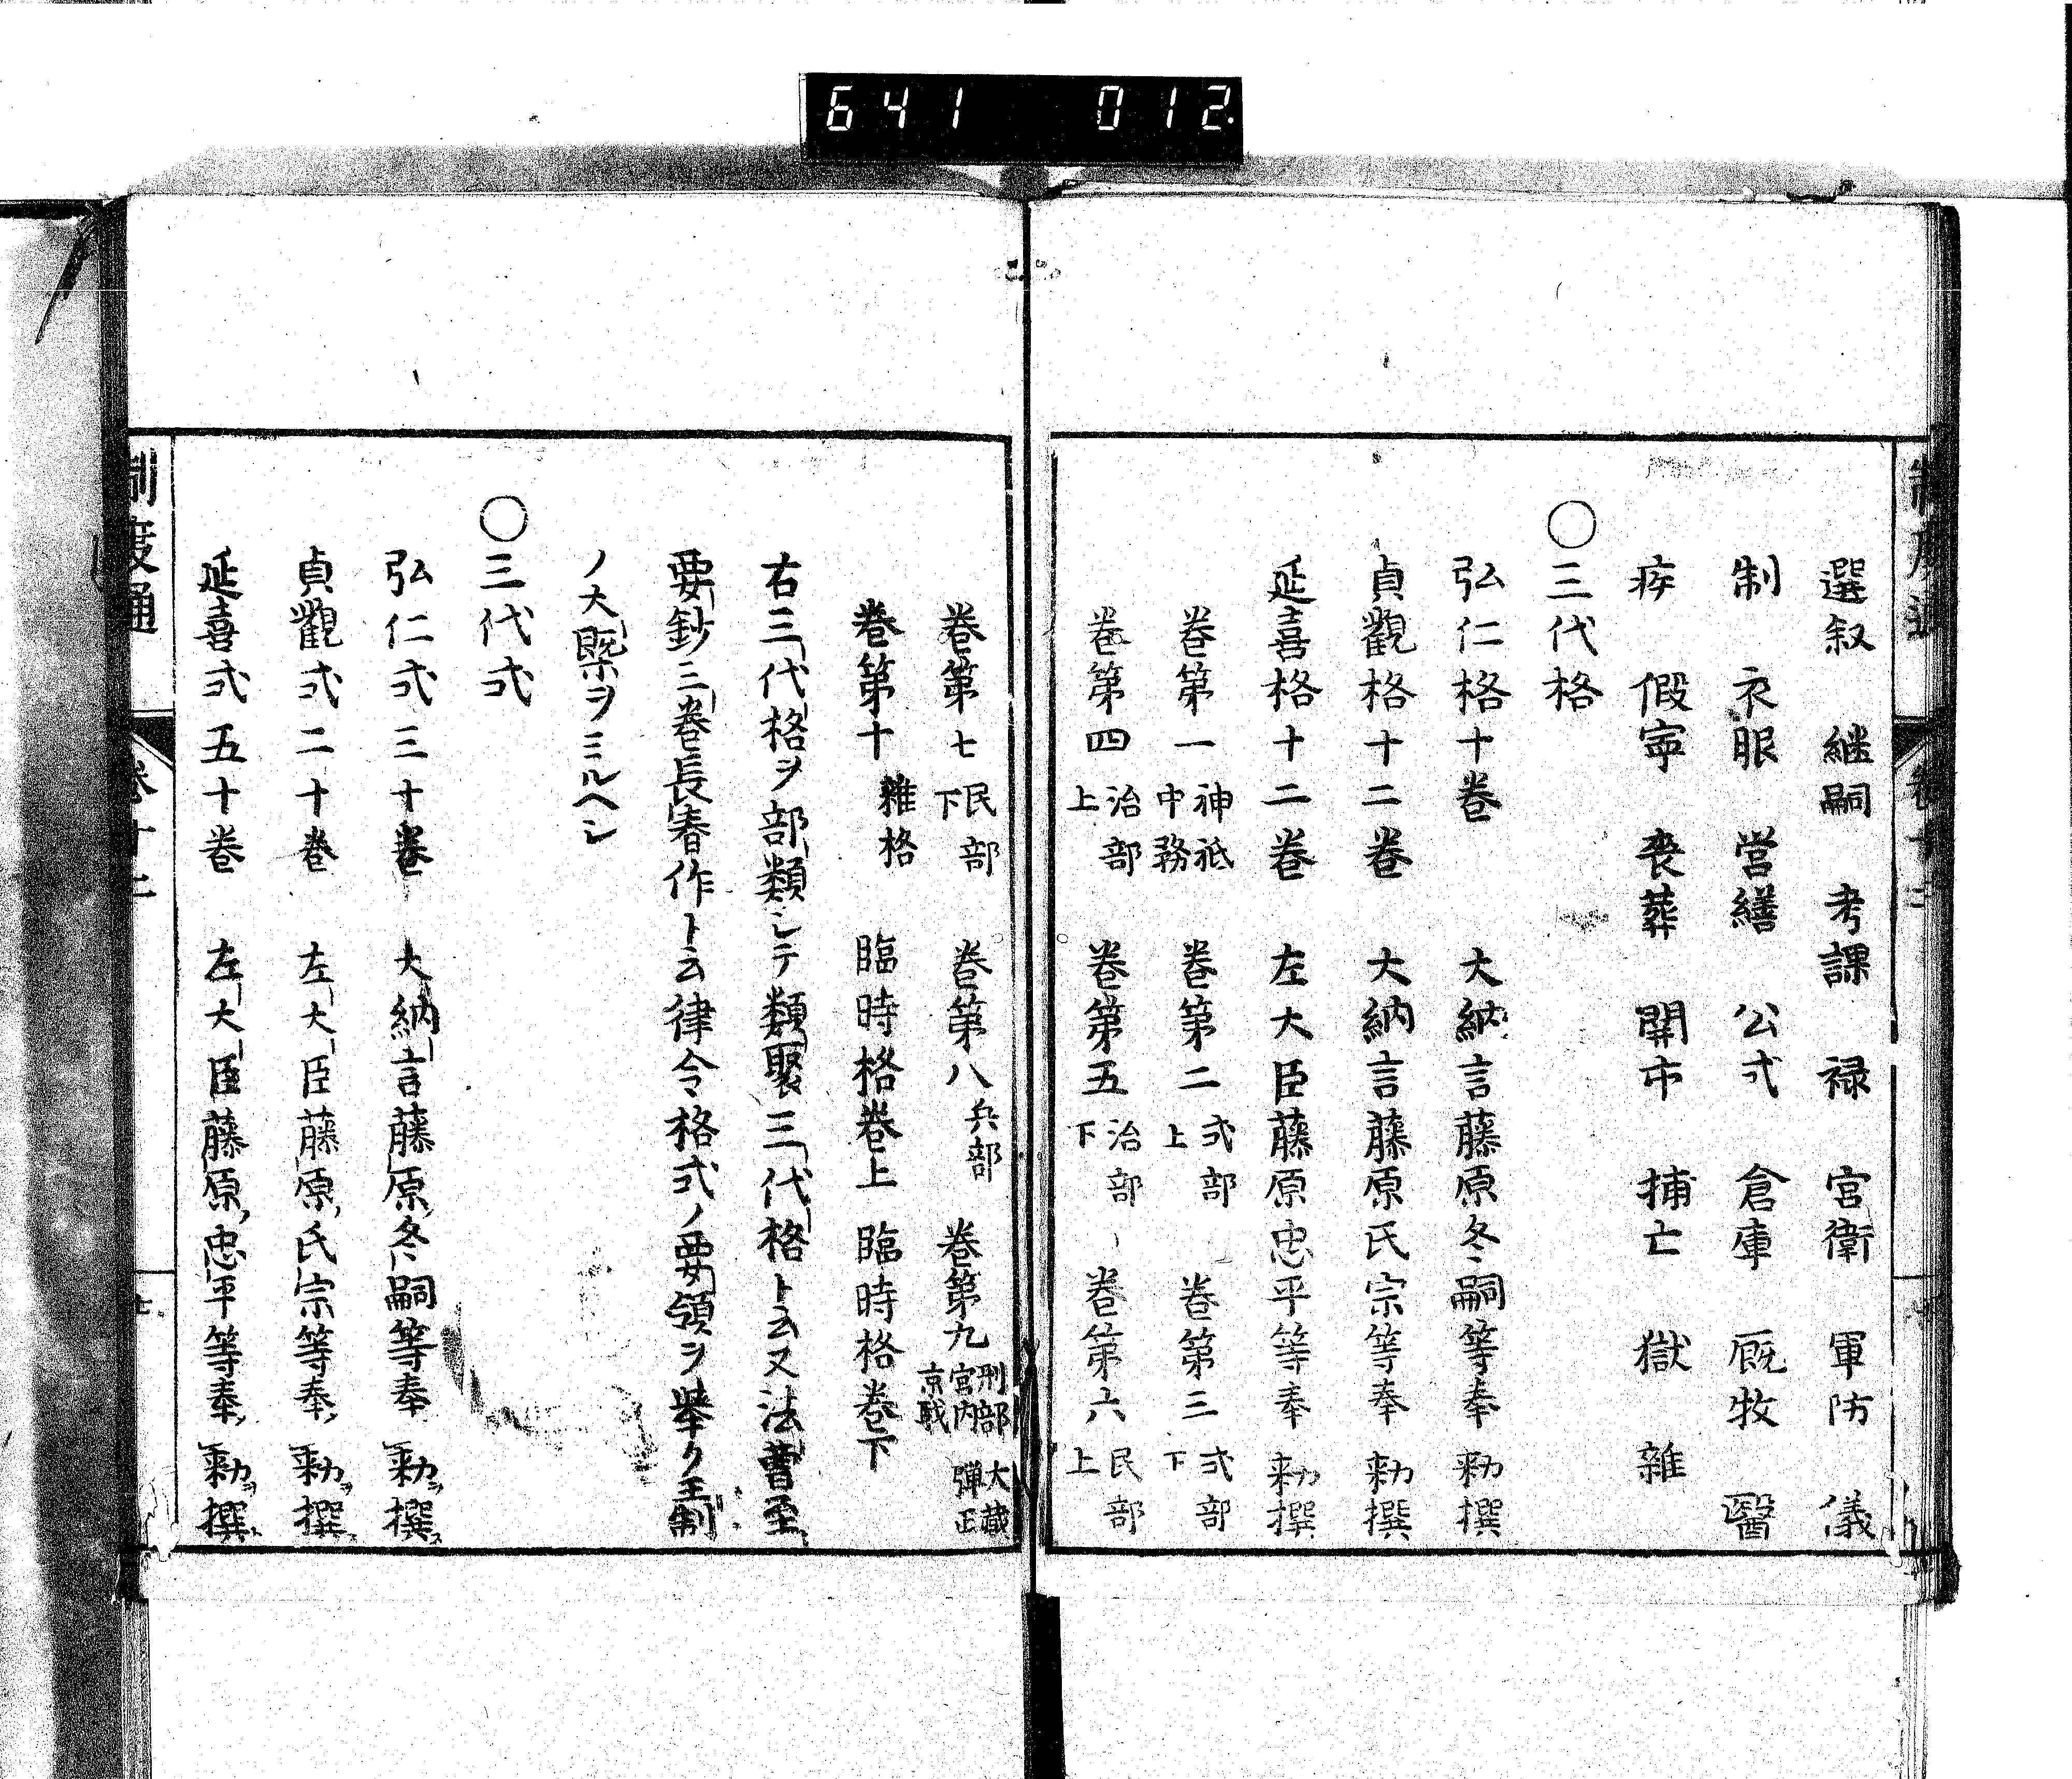 641 012
選叙 継嗣 考課 禄 宮衛 軍防 儀
制 衣服 営繕 公式 倉庫 厩牧 醫
疾 假寧 喪葬 関市 捕亡 獄 雜
〇三代格
弘仁格十巻 大納言藤原冬嗣等奉 勅撰
貞觀格十二巻 大納言藤原氏宗等奉 勅撰
延喜格十二巻 左大臣藤原忠平等奉 勅撰
巻第一 神祇中務 巻第二 式部上 巻第三 式部下
巻第四 治部上 巻第五 治部下 巻第六 民部上
巻第七 民部下 巻第八 兵部 巻第九 刑部 大蔵 宮内 彈正 京職
巻第十 雜格 臨時格巻上 臨時格巻下
右三代格ヲ部類シテ類聚三代格ト云又法曹至
要鈔三巻長寿作ト云律令格式ノ要領ヲ擧ク王制
ノ大槩ヲミルヘシ
〇三代式
弘仁式三十巻 大納言藤原冬嗣等奉 勅ヲ撰ス
貞觀式二十巻 左大臣藤原氏宗等奉 勅ヲ撰ス
延喜式五十巻 左大臣藤原忠平等奉 勅ヲ撰ス
制度通 巻十二